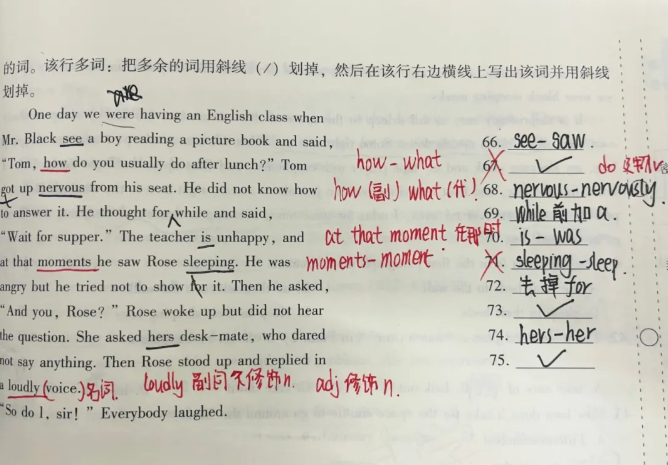 的词。该行多词：把多余的词用斜线（/）划掉，然后在该行右边横线上写出该词并用斜线
划掉。
One day we were having an English class when
Mr. Black see a boy reading a picture book and said,
66. see-saw
"Tom, how do you usually do after lunch?" Tom
how-what
67. ✓
got up nervous from his seat. He did not know how
how（副）what（代）
68. nervous-nervously.
to answer it. He thought for while and said,
69. while前加a.
"Wait for supper." The teacher is unhappy, and
at that moment 在那时
70. is-was
at that moments he saw Rose sleeping. He was
moments-moment.
71. sleeping-sleep.
angry but he tried not to show for it. Then he asked,
72. 去掉for
"And you, Rose?" Rose woke up but did not hear
73. ✓
the question. She asked hers desk-mate, who dared
74. hers-her
not say anything. Then Rose stood up and replied in
75. ✓
a loudly (voice.)名词.
loudly 副词不修饰n. adj修饰n.
"So do I, sir!" Everybody laughed.